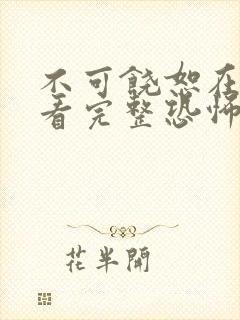 不可饶恕在
看完整恐怖
花半開